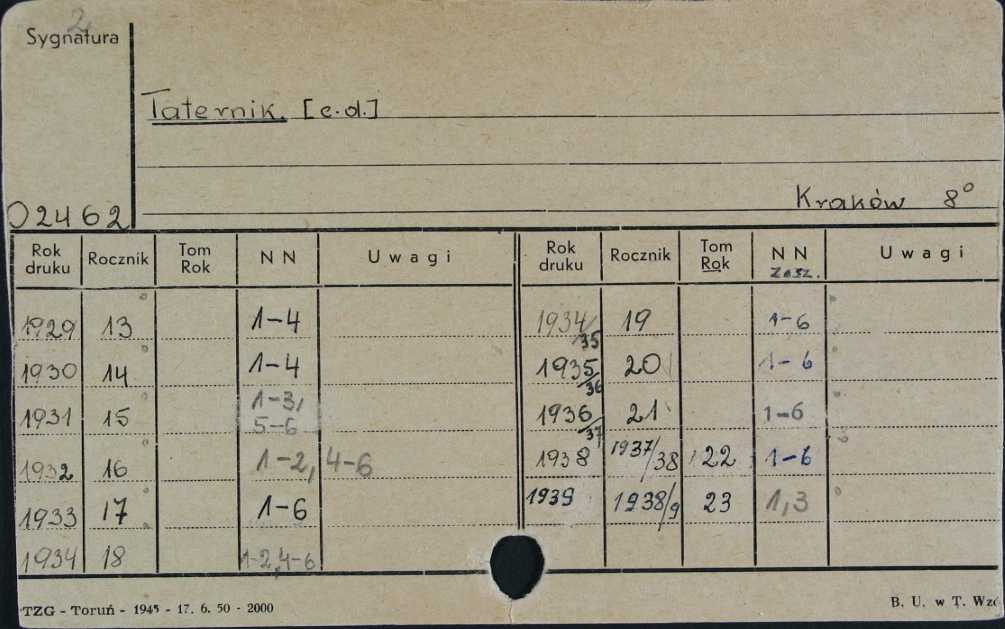 2
Sygnatura
Taternik. [c.d.]
Kraków 8°
02462
Rok druku Rocznik Tom Rok N N Uwagi Rok druku Rocznik Tom Rok N N zesz. Uwagi
1929 13 1-4 1934/35 19 1-6
1930 14 1-4 1935/36 20 1-6
1931 15 1-3, 5-6 1936/37 21 1-6
1932 16 1-2, 4-6 1938 1937/38 22 1-6
1933 17 1-6 1939 1938/9 23 1,3
1934 18 1-2,4-6
TZG - Toruń - 1945 - 17. 6. 50 - 2000 B. U. w T. Wzó